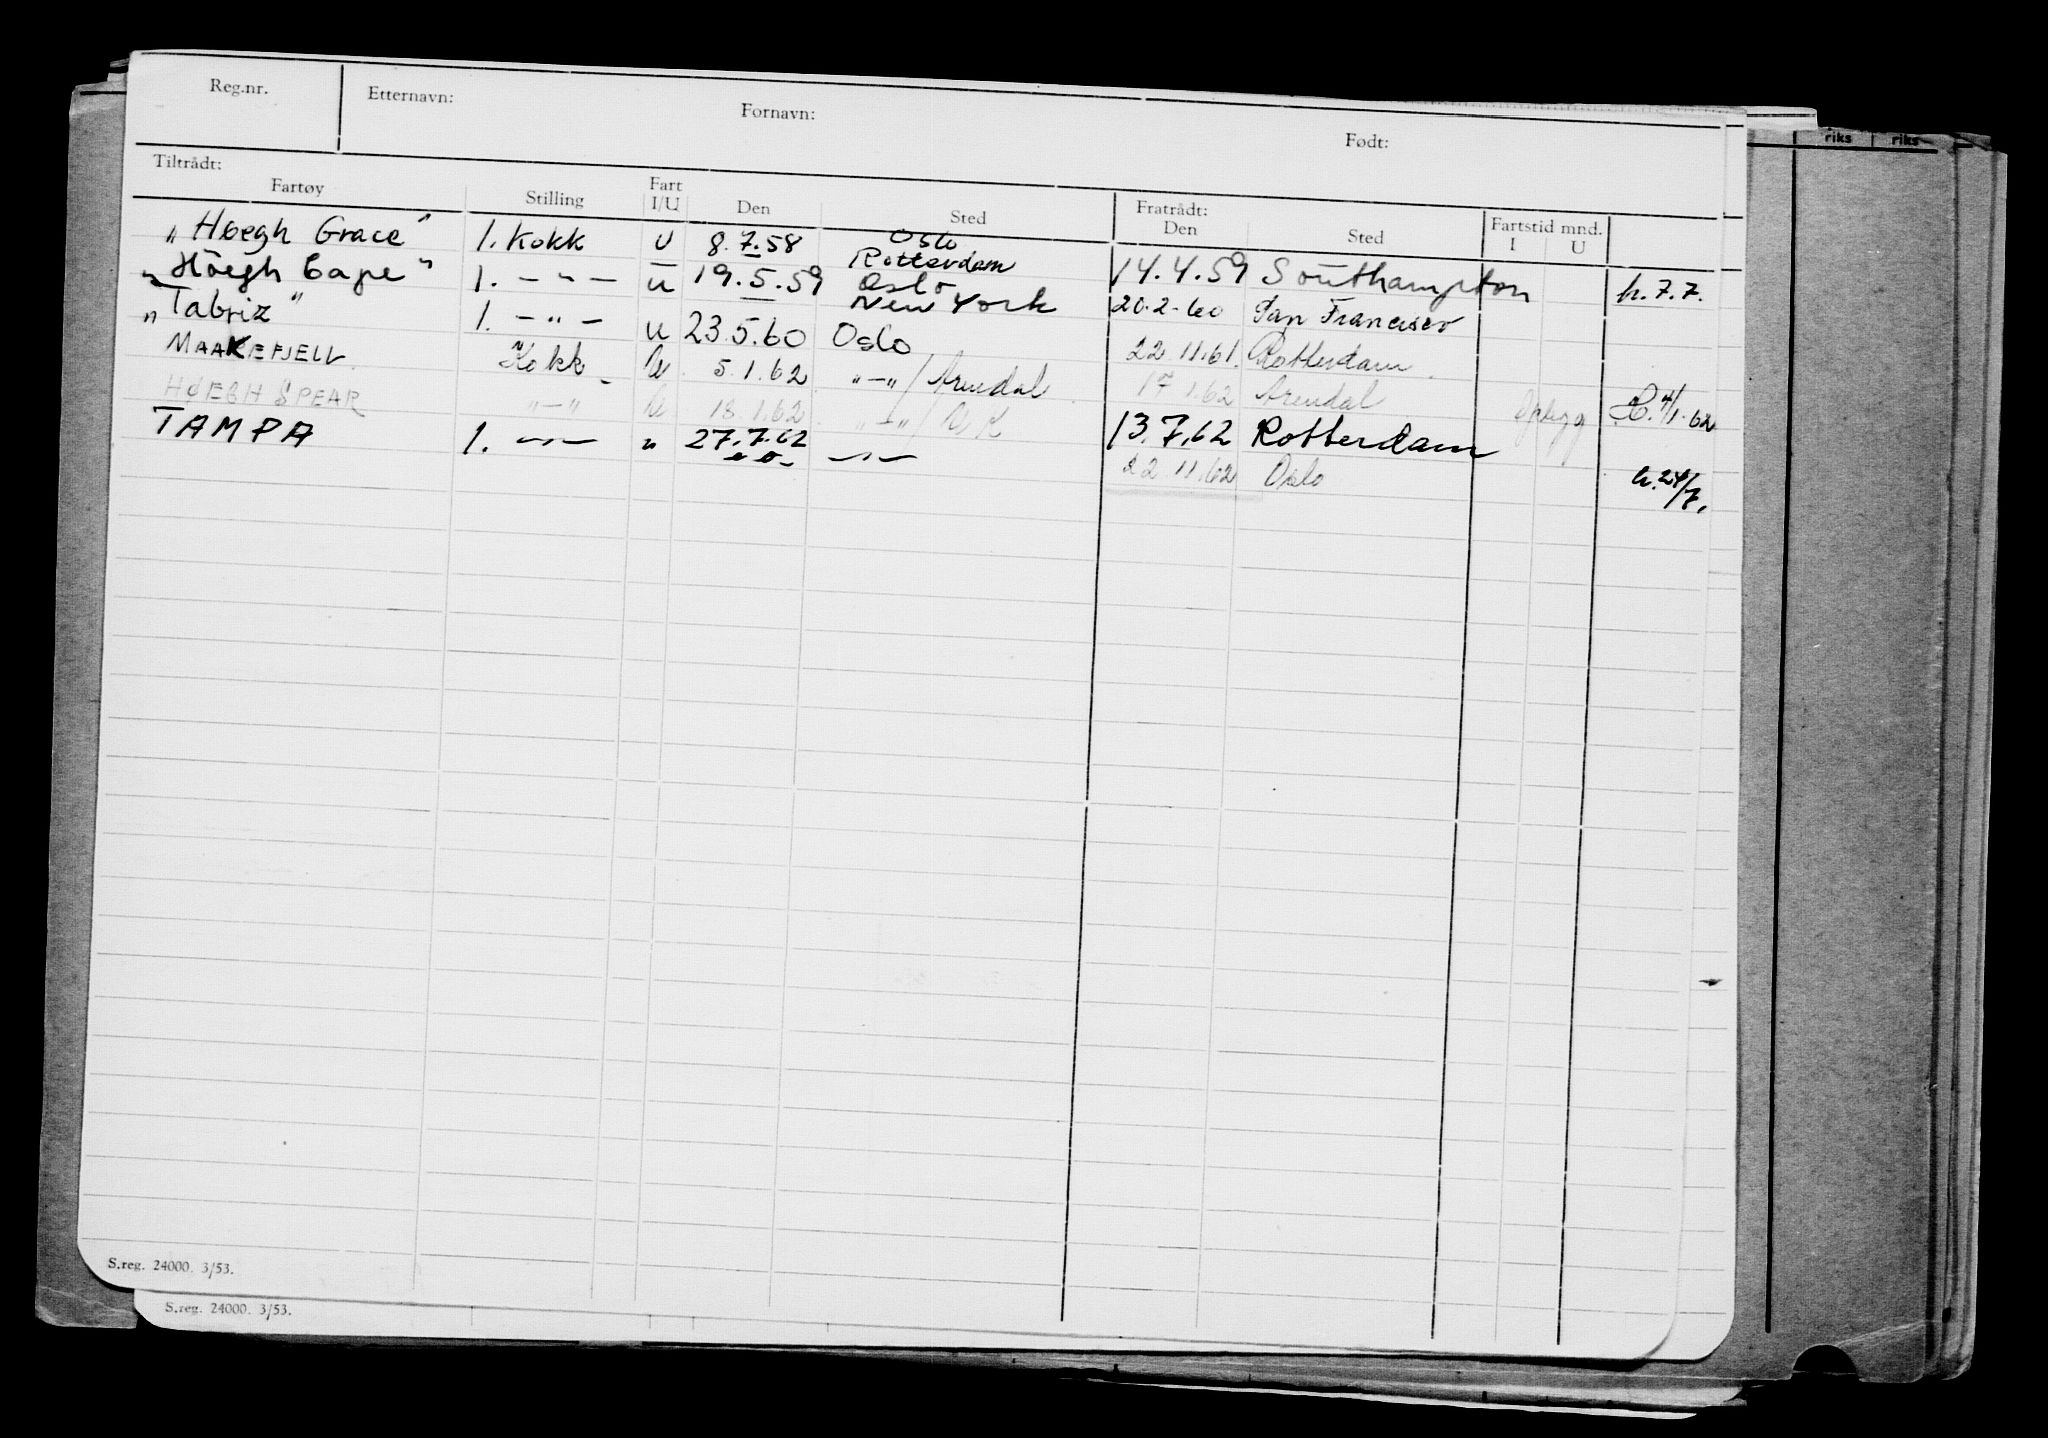 Reg.nr. Etternavn: Fornavn: Født:
Tiltrådt: Fratrådt:
Fartøy Stilling Fart I/U Den Sted Den Sted Fartstid mnd. I U
riks riks
„Høegh Grace" 1. Kokk U 8.7.58 Oslo Rotterdam 14.4.59 Southampton h.7.7.
„Höegh Cape" 1. -„- u 19.5.59 Oslo New York 20.2.60 San Francisco
„Tabriz" 1. -„- u 23.5.60 Oslo 22.11.61. Rotterdam.
MAAKEFJELL Kokk U. 5.1.62 „-„ / Arendal 17.1.62 Arendal H. 4/1-62
HØEGH SPEAR „-„ U. 18.1.62 „-„ / 13.7.62 Rotterdam
TAMPA 1. -„- „ 27.7.62 -„- 22.11.62 Oslo h.24/7.
S.reg. 24000. 3/53.
S.reg. 24000. 3/53.